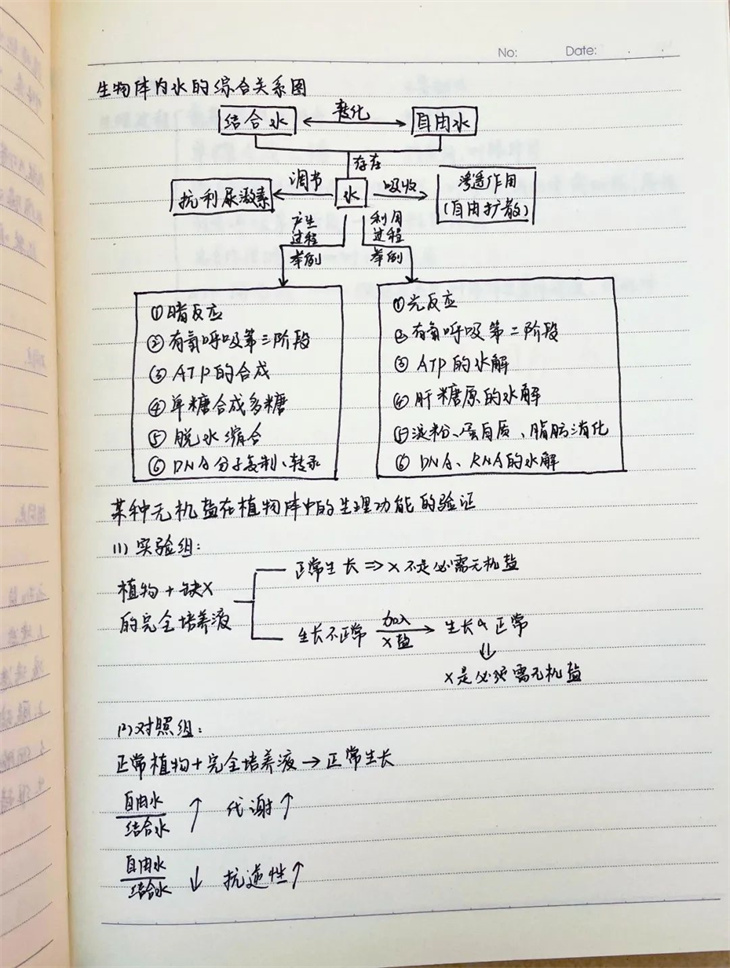 No:
Date:
生物体内水的综合关系图
结合水
转化
自由水
存在
抗利尿激素
调节
水
吸收
渗透作用
(自由扩散)
产生
过程
举例
利用
过程
举例
①暗反应
②有氧呼吸第三阶段
③ATP的合成
④单糖合成多糖
⑤脱水缩合
⑥DNA分子复制、转录
①光反应
②有氧呼吸第二阶段
③ATP的水解
④肝糖原的水解
⑤淀粉、蛋白质、脂肪消化
⑥DNA、RNA的水解
某种无机盐在植物体中的生理功能的验证
(1)实验组:
植物+缺X
的完全培养液
正常生长⇒X不是必需无机盐
生长不正常
加入
X盐
→
生长 正常
⇓
X是必须需无机盐
(2)对照组:
正常植物+完全培养液→正常生长
自由水
结合水
↑ 代谢↑
自由水
结合水
↓ 抗逆性↑